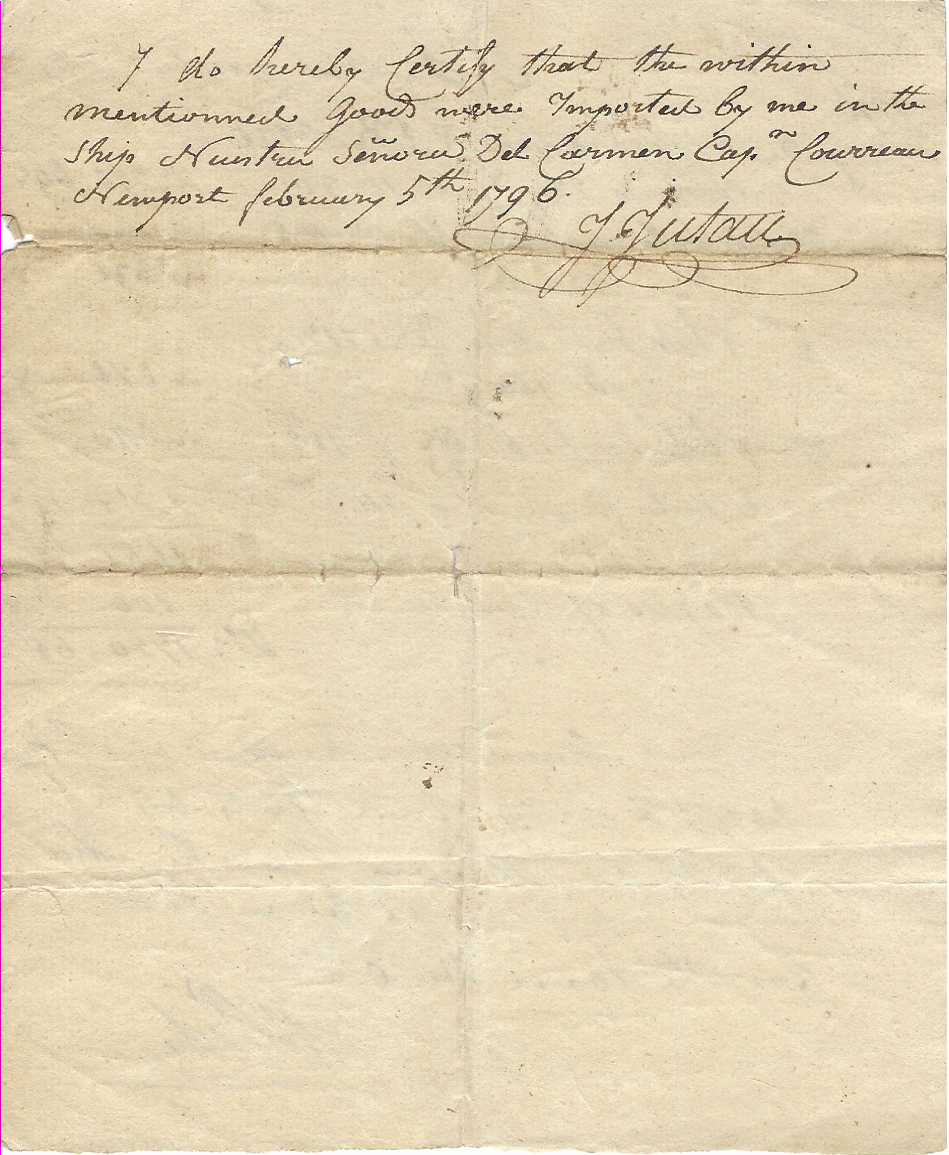 I do hereby Certify that the within
mentionned Good were Imported by me in the
Ship Nuestra Señora Del Carmen Capn Courreau
Newport february 5th 1796.
J. Jutau